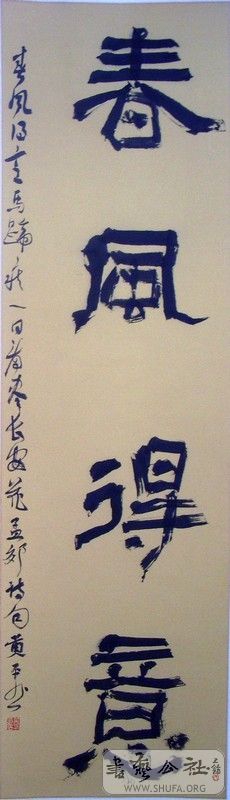 春風得意
春風得意馬蹄疾一日看盡長安花孟郊詩句黄平
書藝公社
WWW.SHUFA.ORG